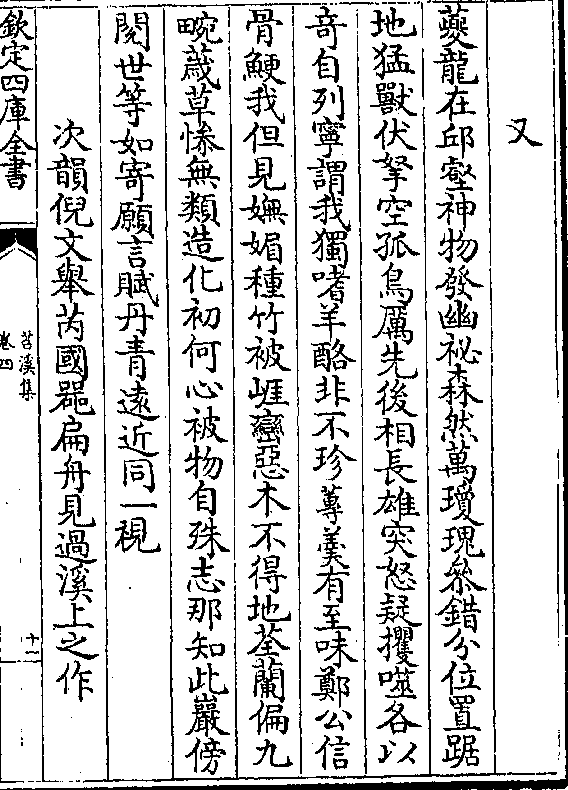 又
夔龍在邱壑神物發幽祕森然萬瓊瑰叅錯分位置踞
地猛獸伏拏空孤鳥厲先後相長雄突怒疑攫噬各以
竒自列寧謂我獨嗜羊酪非不珍蓴羮有至味鄭公信
骨鯁我但見嫵媚種竹被崕巒惡木不得地荃蘭偏九
畹葴草慘無類造化初何心被物自殊志那知此巖傍
閱世等如寄願言賦丹青遠近同一視
次韻倪文舉芮國噐扁舟見過溪上之作
欽定四庫全書
苕溪集
卷四
十一